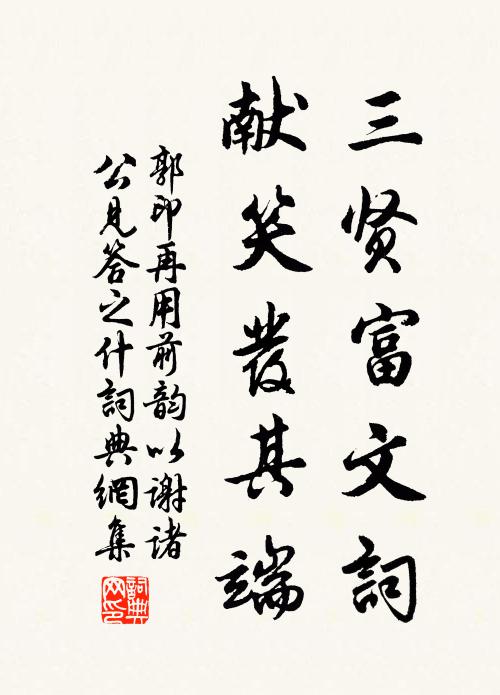 三贤富文詞
献笑發其端
郭印再用前韵以謝诸
公見答之什詞典網集
詞典網印